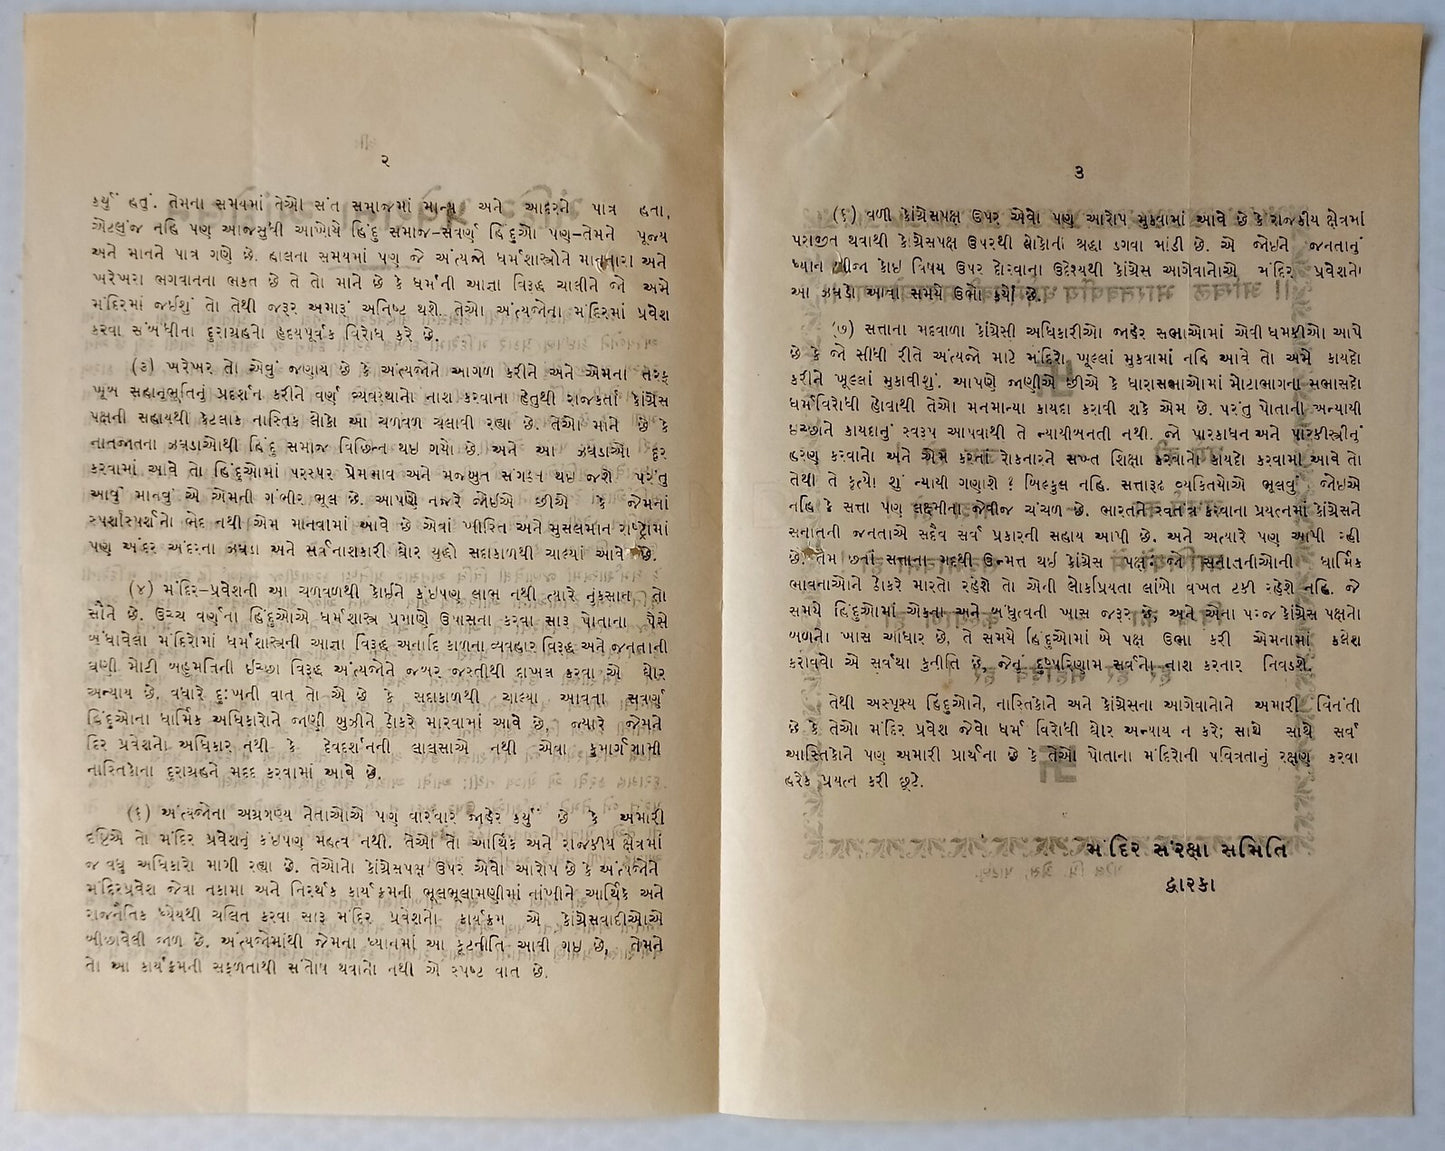 ૨
કર્યું હતું. તેમના સમયમાં તેઓ સંત સમાજમાં માન્ય અને આદરને પાત્ર હતા,
એટલુંજ નહિ પણ આજસુધી આખોયે હિંદુ સમાજ–સવર્ણ હિંદુઓ પણ–તેમને પૂજ્ય
અને માનને પાત્ર ગણે છે. હાલના સમયમાં પણ જે અંત્યજો ધર્મશાસ્ત્રોને માનનારા અને
ખરેખરા ભગવાનના ભક્ત છે તે તો માને છે કે ધર્મની આજ્ઞા વિરૂદ્ધ ચાલીને જો અમે
મંદિરમાં જઈશું તો તેથી જરૂર અમારૂં અનિષ્ટ થશે. તેઓ અંત્યજોના મંદિરમાં પ્રવેશ
કરવા સંબંધીના દુરાગ્રહનો હૃદયપૂર્વક વિરોધ કરે છે.
(૩) ખરેખર તો એવું જણાય છે કે અંત્યજોને આગળ કરીને અને એમના તરફ
ખૂબ સહાનુભૂતિનું પ્રદર્શન કરીને વર્ણ વ્યવસ્થાનો નાશ કરવાના હેતુથી રાજકર્તા કોંગ્રેસ
પક્ષની સહાયથી કેટલાક નાસ્તિક લોકો આ ચળવળ ચલાવી રહ્યા છે. તેઓ માને છે કે
નાતજાતના ઝઘડાઓથી હિંદુ સમાજ વિછિન્ન થઇ ગયો છે. અને આ ઝઘડાઓ દૂર
કરવામાં આવે તો હિંદુઓમાં પરસ્પર પ્રેમભાવ અને મજબુત સંગઠન થઇ જશે પરંતુ
આવું માનવું એ એમની ગંભીર ભૂલ છે. આપણે નજરે જોઇએ છીએ કે જેમનાં
સ્પર્શાસ્પર્શનો ભેદ નથી એમ માનવામાં આવે છે એવાં ખ્રીસ્તિ અને મુસલમાન રાષ્ટ્રોમાં
પણ અંદર અંદરના ઝઘડા અને સર્વનાશકારી ઘોર યુદ્ધો સદાકાળથી ચાલ્યાં આવે છે.
(૪) મંદિર-પ્રવેશની આ ચળવળથી કોઈને કંઇપણ લાભ નથી ત્યારે નુકસાન તો
સૌને છે. ઉચ્ચ વર્ણના હિંદુઓએ ધર્મશાસ્ત્ર પ્રમાણે ઉપાસના કરવા સારૂ પોતાના પૈસે
બંધાવેલા મંદિરોમાં ધર્મશાસ્ત્રની આજ્ઞા વિરૂદ્ધ અનાદિ કાળના વ્યવહાર વિરૂદ્ધ અને જનતાની
ઘણી મોટી બહુમતિની ઈચ્છા વિરૂદ્ધ અંત્યજોને જબર જસ્તીથી દાખલ કરવા એ ઘોર
અન્યાય છે. વધારે દુઃખની વાત તો એ છે કે સદાકાળથી ચાલ્યા આવતા સવર્ણ
હિંદુઓના ધાર્મિક અધિકારોને જાણી બુઝીને ઠોકરે મારવામાં આવે છે, જ્યારે જેમને
દિર પ્રવેશનો અધિકાર નથી કે દેવદર્શનની લાલસાએ નથી એવા કુમાર્ગગામી
નાસ્તિકોના દુરાગ્રહને મદદ કરવામાં આવે છે.
અંત્યજોના અગ્રગણ્ય નેતાઓએ પણ વારંવાર જાહેર કર્યું છે કે અમારી
દષ્ટિએ તો મંદિર પ્રવેશનું કંઇપણ મહત્વ નથી. તેઓ તો આર્થિક અને રાજકીય ક્ષેત્રમાં
જ વધુ અધિકારો માગી રહ્યા છે. તેઓનો કોંગ્રેસપક્ષ ઉપર એવો આરોપ છે કે અંત્યજોને
મંદિરપ્રવેશ જેવા નકામા અને નિરર્થક કાર્યક્રમની ભૂલભૂલામણીમાં નાંખીને આર્થિક અને
રાજનૈતિક ધ્યેયથી ચલિત કરવા સારૂ મંદિર પ્રવેશનો કાર્યક્રમ એ કોંગ્રેસવાદીઓએ
બીછાવેલી જાળ છે. અંત્યજોમાંથી જેમના ધ્યાનમાં આ કૂટનીતિ આવી ગઇ છે, તેમને
તો આ કાર્યક્રમની સફળતાથી સંતોષ થવાનો નથી એ સ્પષ્ટ વાત છે.
૩
(૬) વળી કોંગ્રેસપક્ષ ઉપર એવો પણ આરોપ મુકવામાં આવે છે કે રાજકીય ક્ષેત્રમાં
પરાજીત થવાથી કોંગ્રેસપક્ષ ઉપરથી લોકોની શ્રદ્ધા ડગવા માંડી છે. એ જોઈને જનતાનું
ધ્યાન બીજા કોઇ વિષય ઉપર દોરવાના ઉદેશ્યથી કોંગ્રેસ આગેવાનોએ મંદિર પ્રવેશનો
આ ઝઘડો આવા સમયે ઉભો કર્યો છે.
(૭) સત્તાના મદવાળા કોંગ્રેસી અધિકારીઓ જાહેર સભાઓમાં એવી ધમકીઓ આપે
છે કે જો સીધી રીતે અંત્યજો માટે મંદિરો ખૂલ્લાં મુકવામાં નહિ આવે તો અમે કાયદો
કરીને ખૂલ્લાં મુકાવીશું. આપણે જાણીએ છીએ કે ધારાસભાઓમાં મોટાભાગના સભાસદો
ધર્મવિરોધી હોવાથી તેઓ મનમાન્યા કાયદા કરાવી શકે એમ છે. પરંતુ પોતાની અન્યાયી
ઇચ્છાને કાયદાનું સ્વરૂપ આપવાથી તે ન્યાયીબનતી નથી. જો પારકાધન અને પારકીસ્ત્રીનું
હરણ કરવાનો અને એમ કરતાં રોકનારને સખ્ત શિક્ષા કરવાનો કાયદો કરવામાં આવે તો
તેથી તે કૃત્યો શું ન્યાયી ગણાશે ? બિલ્કુલ નહિ. સત્તારૂઢ વ્યક્તિયોએ ભૂલવું જોઇએ
નહિ કે સત્તા પણ લક્ષ્મીના જેવીજ ચંચળ છે. ભારતને સ્વતંત્ર કરવાના પ્રયત્નમાં કોંગ્રેસને
સનાતની જનતાએ સદૈવ સર્વ પ્રકારની સહાય આપી છે. અને અત્યારે પણ આપી રહી
છે. તેમ છતાં સત્તાના મદથી ઉન્મત્ત થઇ કોંગ્રેસ પક્ષ જો સનાતનીઓની ધાર્મિક
ભાવનાઓને ઠોકરે મારતો રહેશે તો એની લોકપ્રિયતા લાંબો વખત ટકી રહેશે નહિ. જે
સમયે હિંદુઓમાં એકતા અને બંધુત્વની ખાસ જરૂર છે, અને એના પરજ કોંગ્રેસ પક્ષનો
બળનો ખાસ આધાર છે. તે સમયે હિંદુઓમાં બે પક્ષ ઉભા કરી એમનામાં કલેશ
કરાવવો એ સર્વથા કુનીતિ છે, જેનું દુષ્પરિણામ સર્વનો નાશ કરનાર નિવડશે.
તેથી અસ્પૃસ્ય હિંદુઓને, નાસ્તિકોને અને કોંગ્રેસના આગેવાનોને અમારી વિનંતી
છે કે તેઓ મંદિર પ્રવેશ જેવો ધર્મ વિરોધી ઘોર અન્યાય ન કરે; સાથે સાથે સર્વ
આસ્તિકોને પણ અમારી પ્રાર્થના છે કે તેઓ પોતાના મંદિરોની પવિત્રતાનું રક્ષણ કરવા
હરેક પ્રયત્ન કરી છૂટે.
મંદિર સંરક્ષા સમિતિ
દ્વારકા